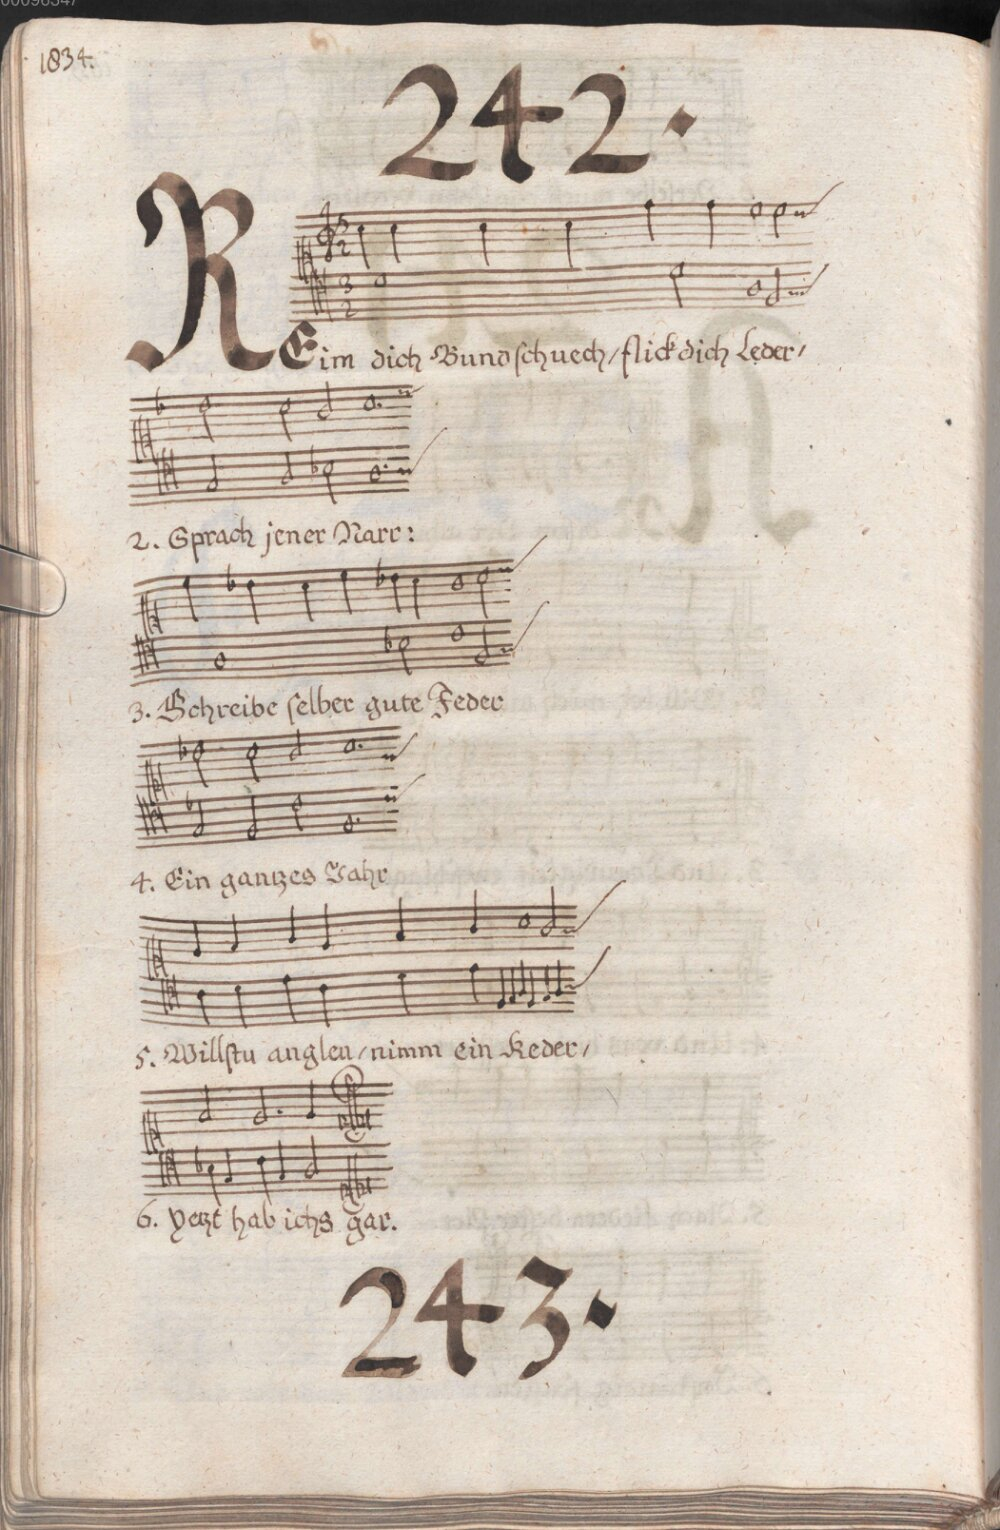 00096347
1834.
242.
REim dich Bundschuech/flick dich Leder/
2. Sprach jener Narr:
3. Schreibe selber gute Feder
4. Ein gantzes Jahr
5. Willstu anglen/nimm ein Keder/
6. Yetzt hab ichs gar.
243.